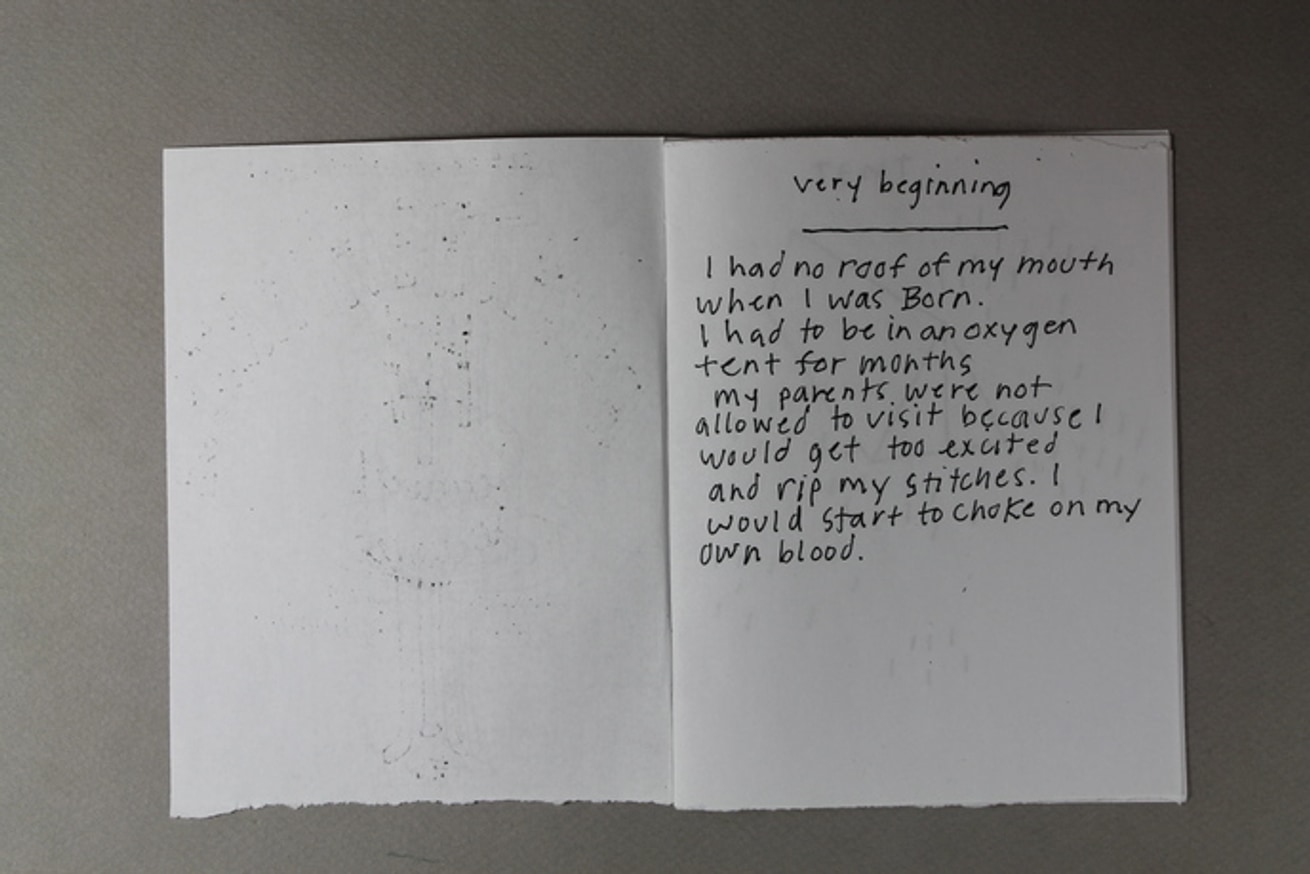 very beginning
I had no roof of my mouth
when I was Born.
I had to be in an oxygen
tent for months
my parents were not
allowed to visit because I
would get too excited
and rip my stitches. I
would start to choke on my
own blood.